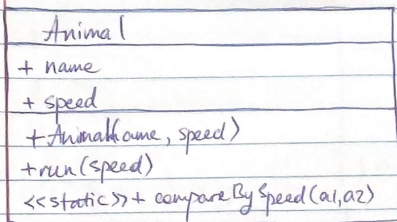 Animal
+ name
+ speed
+ Animal(name, speed)
+ run(speed)
<<static>> + compareBySpeed(a1,a2)